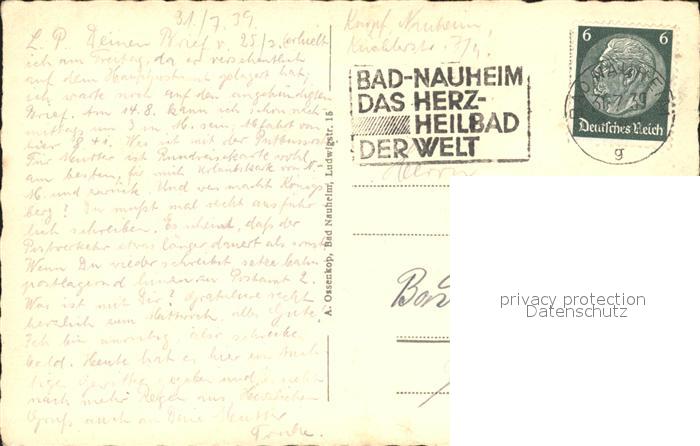 31./7.39.
L. P. Deinen Brief v. 25/7. erhielt
ich am Freitag, da er versehentlich
auf dem Hauptpostamt gelagert hat,
ich warte noch auf den angekündigten
Brief. Am 14.8. kann ich schon nach-
mittags um 3 in M. sein, Abfahrt von
hier 8. Was ist mit der
Für Mutter ist Rundreisekarte wohl
am besten, für mich Urlaubskarte von N.-
M. und zurück. Und was macht Königs-
berg? Du mußt mal recht ausführ-
lich schreiben. Es scheint, daß der
Postverkehr etwas länger dauert als sonst.
Wenn Du wieder schreibst setze
postlagernd Postamt 2.
Was ist mit Dir? Gratuliere recht
herzlich zum alles Gute.
Ich bin unruhig, also schreibe
bald. Heute hat es hier ein
Gewitter gegeben und
nach mehr Regen aus. Herzlichen
Gruß, auch an Deine Mutter
A. Ossenkop, Bad Nauheim, Ludwigstr. 15
Nauheim,
BAD-NAUHEIM
DAS HERZ-
HEILBAD
DER WELT
6 6
Deutsches Reich
31.7.39
g
Herrn
privacy protection
Datenschutz